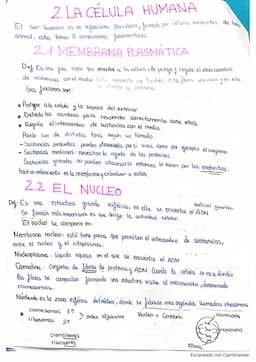 2. LA CÉLULA HUMANA
El ser humano es un organismo pluricelular, formado por células eucariotas de tipo
animal, esta tiene 3 componentes fundamentales.
2.1 MEMBRANA PLASMÁTICA
Def: Es una fina capa que envuelve a la célula, la protege y regula el intercambio
de sustancias con el medio.
Sus funciones son:
• Protege a la célula y la separa del exterior
• Detecta los cambios para responder correctamente ante ellos.
• Regula el intercambio de sustancias con el medio.
Puede ser de distintos tipos según su tamaño
- Sustancias pequeñas pueden atravesarla por sí solas como por ejemplo el oxígeno
- Sustancias medianas necesitan la ayuda de las proteínas
- Sustancias grandes no pueden atravesarla entonces lo hacen por las
hace un en la membrana y a estas.
2.2 EL NUCLEO
Def: Es una estructura grande esférica, en ella se encuentra el ADN material genético
Su función más importante es que dirige la actividad celular.
El núcleo se compone en:
Membrana nuclear: está tiene poros que permiten el intercambio de sustancias,
entre el núcleo y el citoplasma.
Nucleoplasma: Líquido acuoso en el que se encuentra el ADN
Cromatina: Conjunto de fibras de proteínas y ADN cuando la célula se va a dividir
las fibras se compactan formando una estructura visible al microscopio, denominada
cromosomas.
Nucleolo: es la zona esférica del núcleo, donde se fabrican unos orgánulos llamados ribosomas
cromosomas
ribosomas
Núcleo = Cerebro
cromosomas
ribosomas
fibras
Escaneado con CamScanner